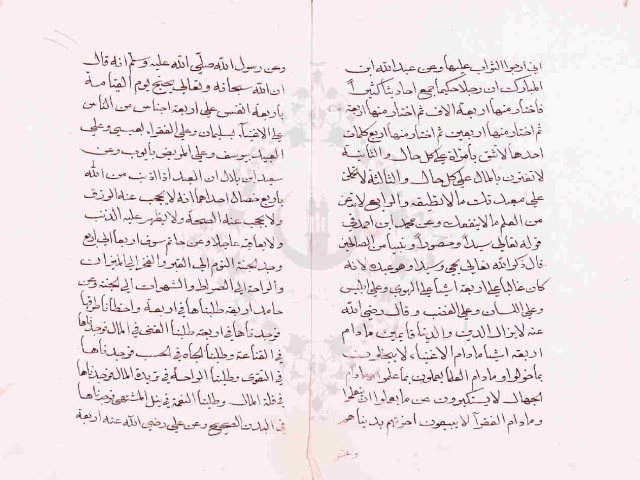 اني ارجو الثواب عليها وعن عبد الله ابن
المبارك ان رجلا حكيما جمع احاديثا كثيراً
فاختار منها اربعة الاف ثم اختار منها اربعة
ثم اختار منها اربعين ثم اختار منها اربع كلمات
احدها لا تثق بامراة على كل حال والثانية
لا تغترن بالمال على كل حال والثالثة لا تحمل
على معدتك ما لا تطيقه والرابع لا تجمع
من العلم ما لا ينفعك وعن محمد ابن احمد في
قوله تعالى سيداً وحصوراً ونبيا من الصالحين
قال ذكر الله تعالى يحي وسيدا وهو عبده لانه
كان غالبا على اربعة اشيا على الهوى وعلى ابليس
وعلى اللسان وعلى الغضب وقال رضي الله
عنه لا يزال الدين والدنيا قايمين ما دام
اربعة اشيا ما دام الاغنياء لا يبخلون
بما خولوا وما دام العلما يعملون بما علموا وما دام
الجهال لا يستكبرون عن ما لم يعلموا
وما دام الفقرآ لا يبيعون اخرتهم بدنياهم
وعن
وعن رسول الله صلى الله عليه وسلم انه قال
ان الله سبحانه وتعالى يحتج يوم القيامة
باربعة انفس على اربعة اجناس من الناس
على الاغنيآ بسليمان وعلى الفقرا بعيسى وعلى
العبيد بيوسف وعلى المريض بايوب وعن
سعد ابن بلال ان العبد اذا اذنب من الله
باربع خصال احداهما انه لا يحجب عنه الرزق
ولا يحجب عنه الصحة ولا يظهر عليه الذنب
ولا يعاقبه عاجلا وعن حاتم سوف اربعا الى اربع
وجد لجنة النوم الى القبر والفخر الى الميزان
والراحة الى الصراط والشهوات الى الجنة وعن
حامد اربعة طلبناها في اربعة واخطانا طرقها
فوجدناها في اربعة طلبنا الغنى في المال فوجدناها
في القناعة وطلبنا الجاه في الحسب فوجدناها
في التقوى وطلبنا الراحة في المال فوجدناها
في قلة المال وطلبنا النعمة في فوجدناها
في البدن الصحيح وعن علي رضي الله عنه اربعة